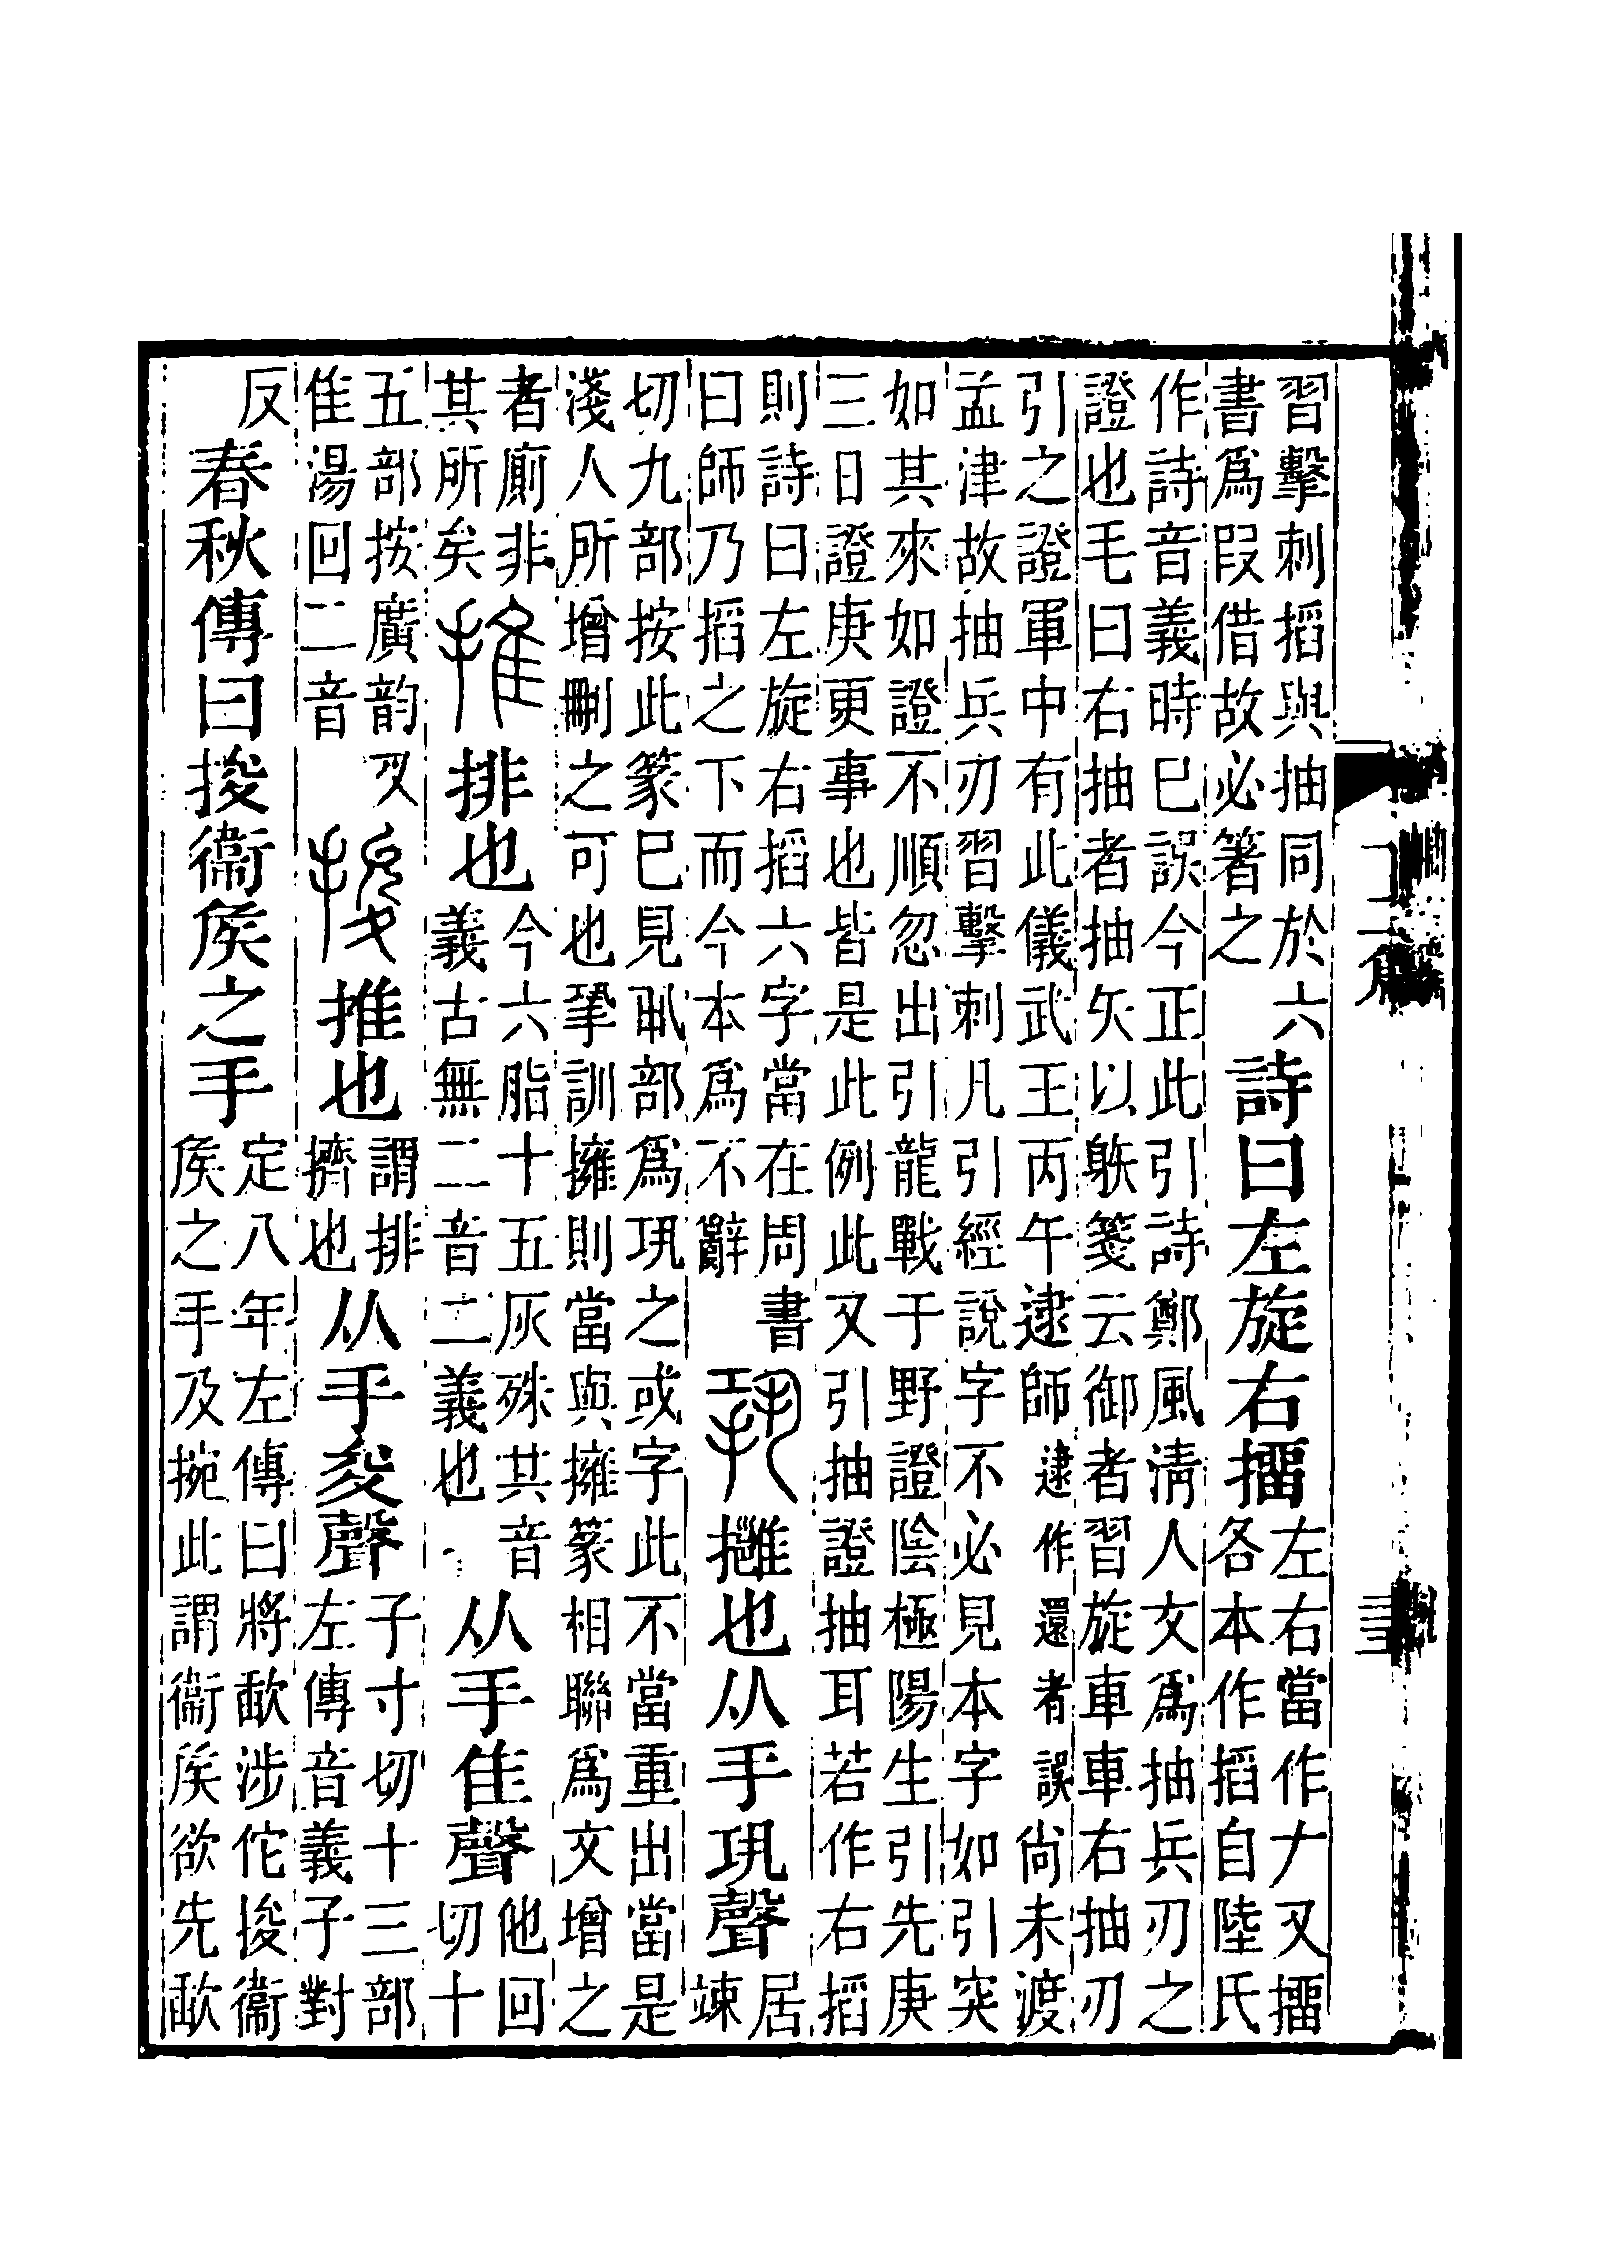 習擊刺搯與抽同於六
書爲叚借故必箸之
詩曰左旋右㩅
左右當作𠂇又㩅
各本作搯自陸氏
作詩音義時巳誤今正此引詩鄭風淸人文爲抽兵刃之
證也毛曰右抽者抽矢以䠶箋云御者習旋車車右抽刃
引之證軍中有此儀武王丙午逮師逮作還者誤尚未渡
孟津故抽兵刃習擊刺凡引經說字不必見本字如引突
如其來如如證不順忽出引龍戰于野證陰極陽生引先庚
三日證庚更事也皆是此例此又引抽證抽耳若作右搯
則詩曰左旋右搯六字當在周書
曰師乃搯之下而今本爲不辭
𢀜
𢹬也从手巩聲
居
竦
切九部按此篆巳見丮部爲巩之或字此不當重出當是
淺人所增刪之可也𢀜訓擁則當與擁篆相聯爲文增之
者廁非
其所矣
推
排也
今六脂十五灰殊其音
義古無二音二義也
从手隹聲
他回
切十
五部按廣韵叉
隹湯回二音
捘
推也
謂排
擠也
从手夋聲
子寸切十三部
左傳音義子對
反
春秋傳曰捘衞矦之手
定八年左傳曰將歃涉佗捘衞
矦之手及捥此謂衞矦欲先歃